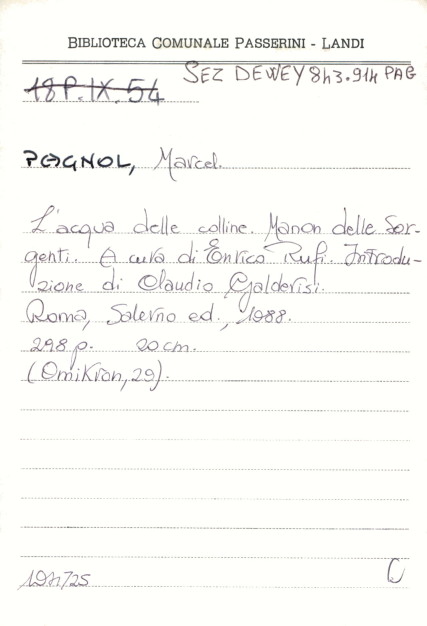 BIBLIOTECA COMUNALE PASSERINI - LANDI
SEZ DEWEY 843.914 PAG
18P.IX.54
PAGNOL, Marcel.
L'acqua delle colline. Manon delle Sor-
genti. A cura di Enrico Rufi. Introdu-
zione di Claudio Galderisi.
Roma, Salerno ed., 1988.
298 p. 20 cm.
(Omikron, 29).
C